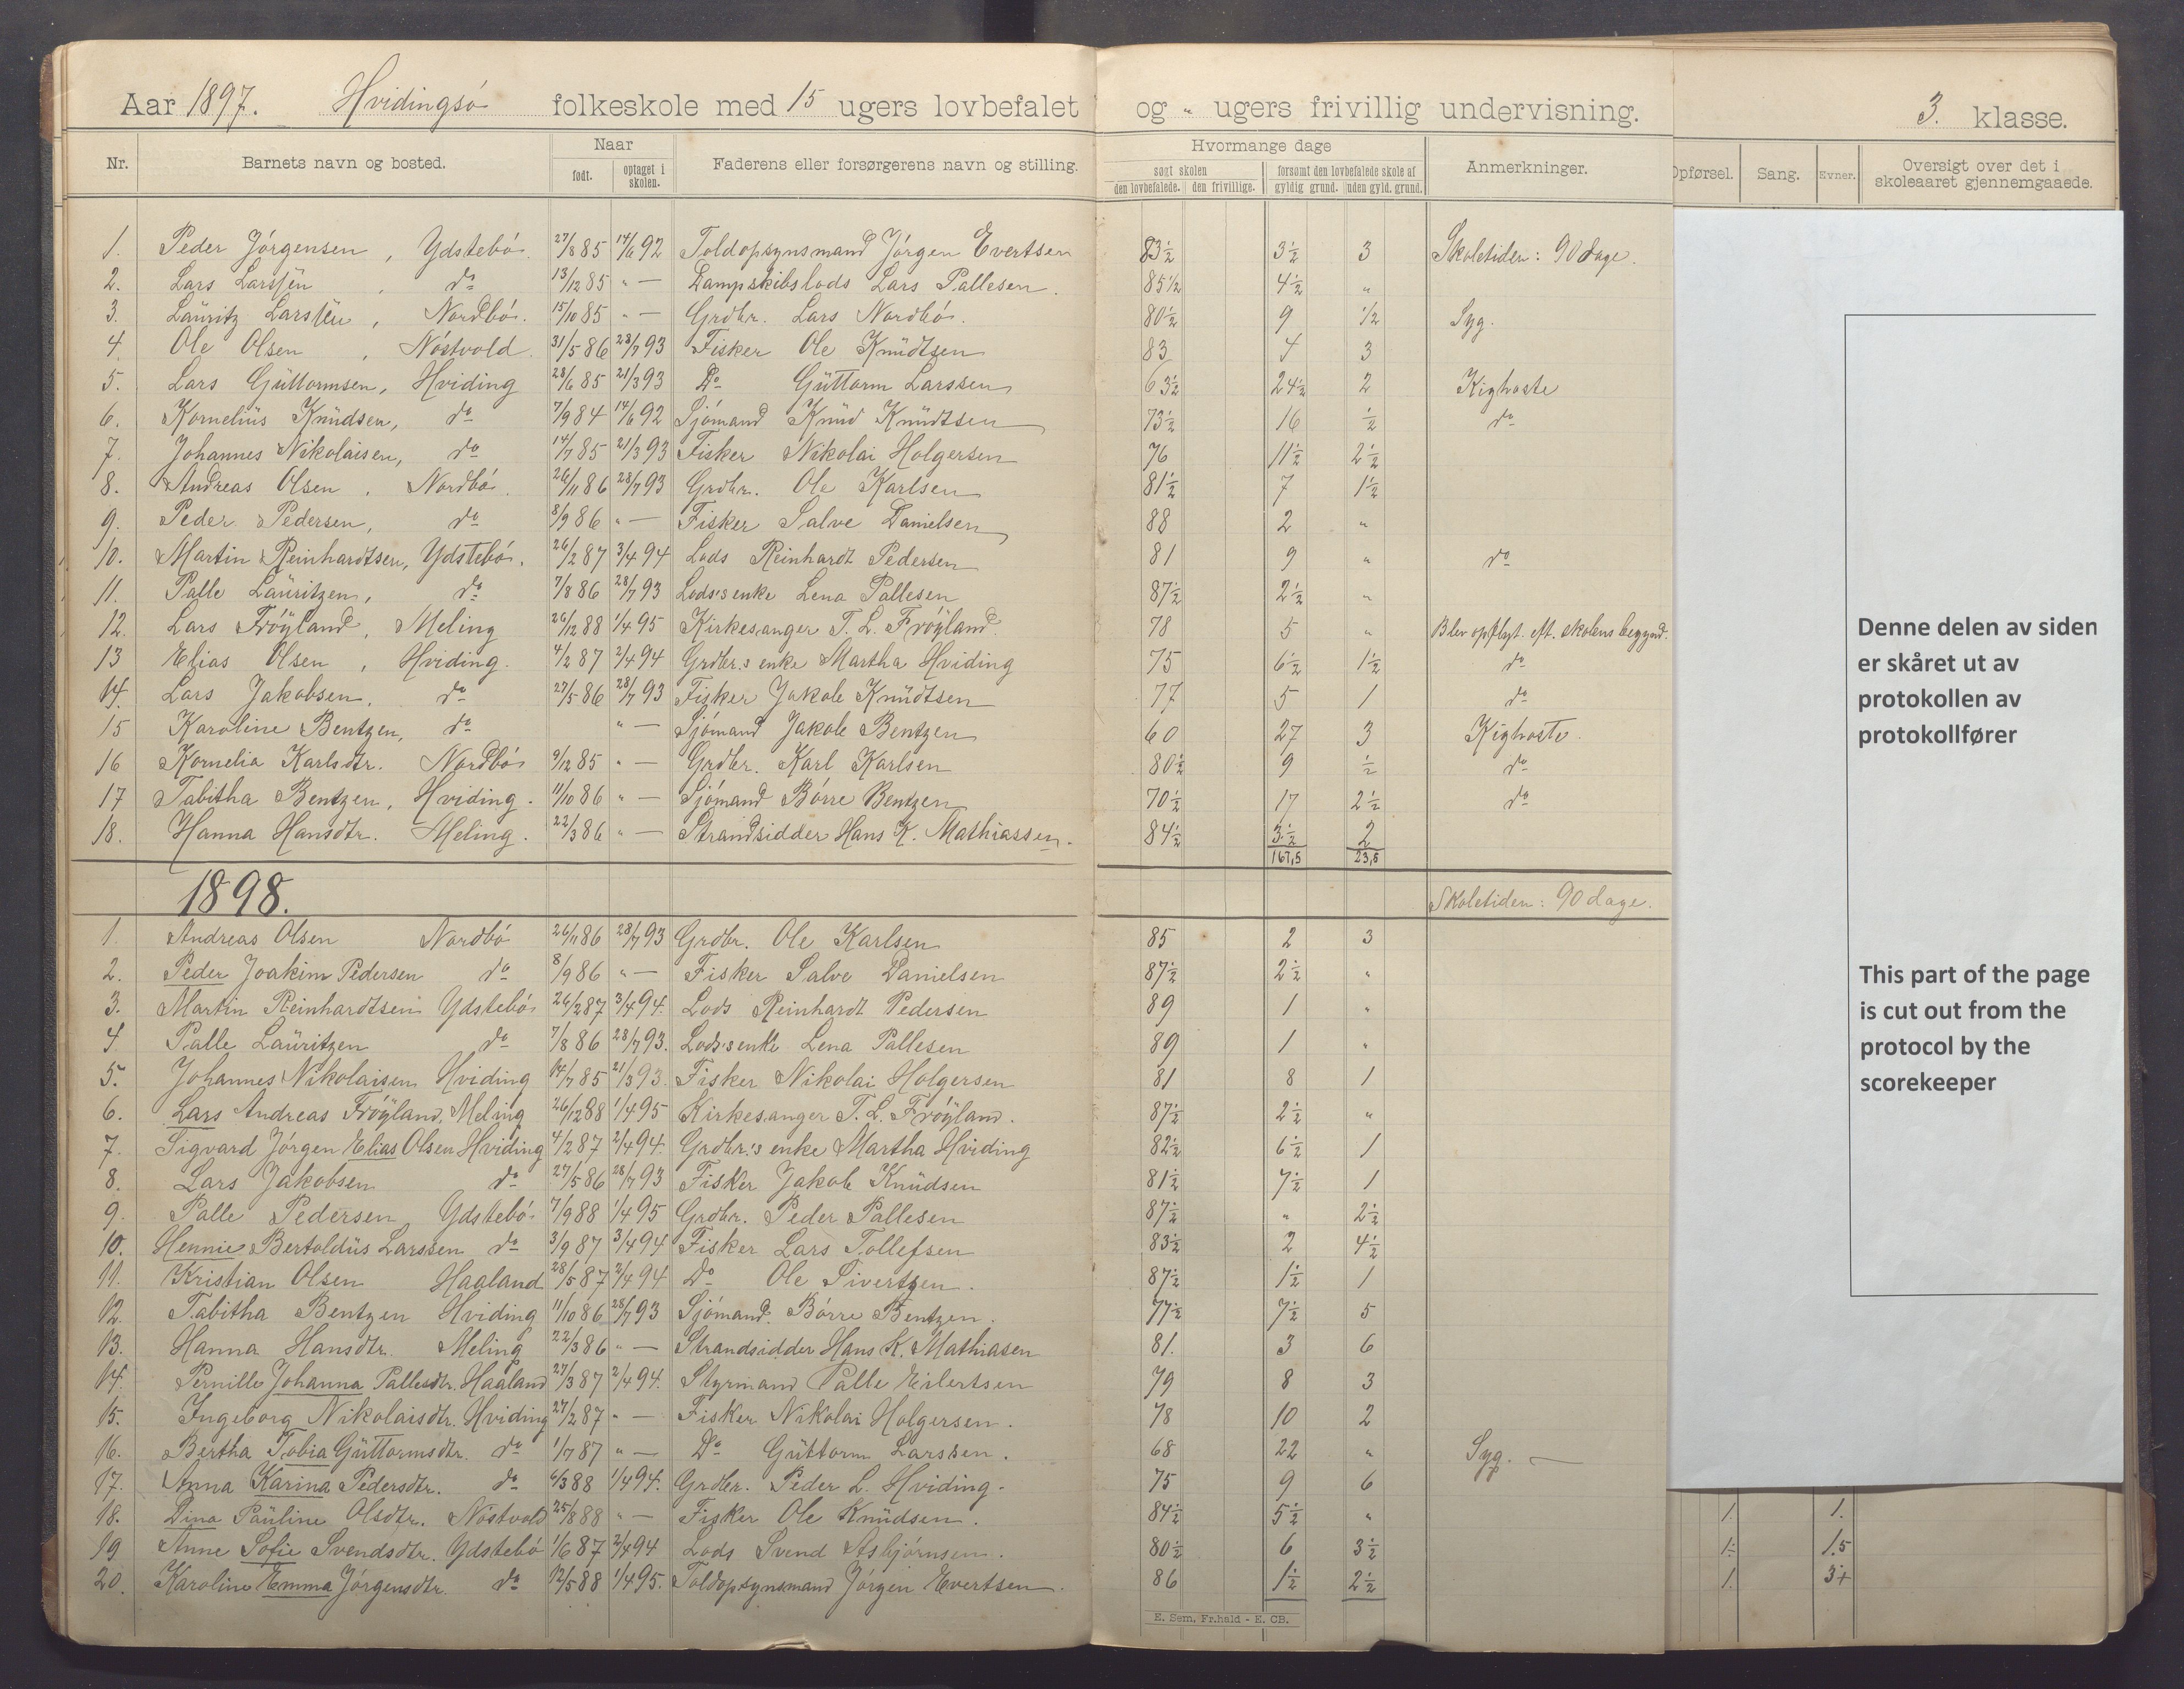 Aar 1897. Hvidingsø folkeskole med 15 ugers lovbefalet og „ ugers frivillig undervisning. 3. klasse.
Nr. Barnets navn og bosted. Naar født. optaget i skolen. Faderens eller forsørgerens navn og stilling. Hvormange dage søgt skolen den lovbefalede. den frivillige. forsømt den lovbefalede skole af gyldig grund. uden gyld. grund. Anmerkninger. Opførsel. Sang. Evner. Oversigt over det i skoleaaret gjennemgaaede.
1. Peder Jørgensen, Ydstebø. 27/8 85 14/6 92 Toldopsynsmand Jørgen Evertsen 83½ 3½ 3 Skoletiden: 90 dage.
2. Lars Larssen, do 13/12 85 „ — Dampskibslods Lars Pallesen. 85½ 4½ „
3. Lauritz Larssen, Nordbø. 15/10 85 „ — Grdbr. Lars Nordbø. 80½ 9 ½ Syg.
4. Ole Olsen, Nøstvold. 31/5 86 28/7 93 Fisker Ole Knudtsen 83 4 3
5. Lars Guttormsen, Hviding 28/6 85 21/3 93 Do Guttorm Larssen 63½ 24½ 2 Kighoste
6. Kornelius Knudsen, do 7/9 84 14/6 92 Sjømand Knud Knudtsen 73½ 16 ½ do
7. Johannes Nikolaisen, do 14/7 85 21/3 93 Fisker Nikolai Holgersen 76 11½ 2½
8. Andreas Olsen, Nordbø. 26/11 86 28/7 93 Grdbr. Ole Karlsen 81½ 7 1½
9. Peder Pedersen, do 8/9 86 „ — Fisker Salve Danielsen 88 2 „
10. Martin Reinhardtsen, Ydstebø. 26/2 87 3/4 94 Lods Reinhardt Pedersen 81 9 „ do
11. Palle Lauritzen, do 7/8 86 28/7 93 Lods's enke Lena Pallesen 87½ 2½ „
12. Lars Frøyland, Meling 26/12 88 1/4 95 Kirkesanger T. L. Frøyland. 78 5 „ Blev opflyt. eft. skolens begynd.
13 Elias Olsen, Hviding. 4/2 87 2/4 94 Grdbr.s enke Martha Hviding 75 6½ 1½ do
14. Lars Jakobsen. do 27/5 86 28/7 93 Fisker Jakob Knudtsen 77 5 1 do
15 Karoline Bentzen, do „ — Sjømand Jakob Bentzen 60 27 3 Kighoste.
16 Kornelia Karlsdtr. Nordbø 9/12 85 „ — Grdbr. Karl Karlsen 80½ 9 ½ do
17 Tabitha Bentzen, Hviding. 11/10 86 „ — Sjømand Børre Bentzen 70½ 17 2½ do
18. Hanna Hansdtr. Meling. 22/3 86 „ — Strandsidder Hans K. Mathiassen. 84½ 3½ 2
167,5 23,5
1898. Skoletiden: 90 dage.
1. Andreas Olsen Nordbø 26/11 86 28/7 93 Grdbr. Ole Karlsen 85 2 3
2. Peder Joakim Pedersen do 8/9 86 „ — Fisker Salve Danielsen 87½ 2½ „
3. Martin Reinhardtsen Ydstebø 26/2 87 3/4 94. Lods Reinhardt Pedersen 89 1 „
4. Palle Lauritzen do 7/8 86 28/7 93. Lods's enke Lena Pallesen 89 1 „
5. Johannes Nikolaisen Hviding 14/7 85 21/3 93. Fisker Nikolai Holgersen 81 8 1
6. Lars Andreas Frøyland, Meling 26/12 88 1/4 95 Kirkesanger T. L. Frøyland. 87½ 2½ „
7. Sigvard Jørgen Elias Olsen Hviding 4/2 87 2/4 94. Grdbr.'s enke Martha Hviding 82½ 6½ 1
8. Lars Jakobsen do 27/5 86 28/7 93 Fisker Jakob Knudsen 81½ 7½ 1
9. Palle Pedersen Ydstebø 7/9 88 1/4 95 Grdbr. Peder Pallesen 87½ „ 2½
10. Hennie Bertoldus Larssen do 3/9 87 3/4 94 Fisker Lars Tollefsen 83½ 2 4½
11. Kristian Olsen Haaland 28/5 87 2/4 94 Do Ole Sivertsen. 87½ 1½ 1
12. Tabitha Bentzen Hviding 11/10 86 28/7 93 Sjømand Børre Bentzen. 77½ 7½ 5
13. Hanna Hansdtr. Meling 22/3 86 „ — Strandsidder Hans K. Mathiasen 81. 3 6
14. Pernille Johanna Pallesdtr. Haaland 27/3 87 2/4 94. Styrmand Palle Eilertsen 79 8 3
15. Ingeborg Nikolaisdtr. Hviding 27/2 87 „ — Fisker Nikolai Holgersen. 78 10 2
16. Bertha Tobia Guttormsdtr. do 1/7 87 „ — Do Guttorm Larssen. 68 22 „ Syg. —
17. Anna Karina Pedersdtr. do 6/3 88 1/4 94. Grdbr. Peder L. Hviding. 75 9 6
18. Dina Pauline Olsdtr. Nøstvold 25/8 88 „ — Fisker Ole Knudsen. 84½ 5½ „ 1. 1.
19 Anne Sofie Svendsdtr. Ydstebø 1/6 87 2/4 94 Lods Svend Asbjørnsen. 80½ 6 3½ 1÷ 1.5
20. Karoline Emma Jørgensdtr. do 12/5 88 1/4 95. Toldopsynsmand Jørgen Evertsen. 86 1½ 2½ 1. 3+
E. Sem, Fr.hald - E. CB.
Denne delen av siden
er skåret ut av
protokollen av
protokollfører
This part of the page
is cut out from the
protocol by the
scorekeeper